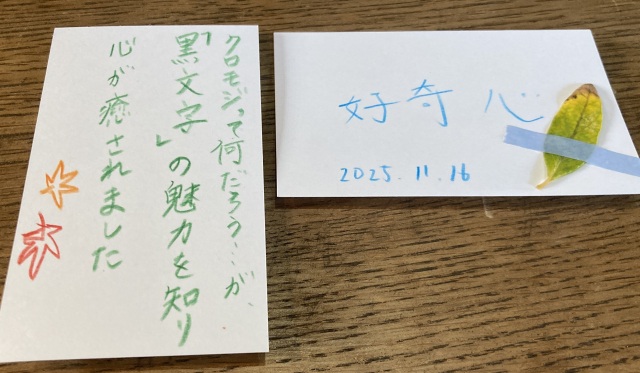 クロモジって何だろう…が、
「黒文字」の魅力を知り
心が癒されました
好奇心
2025.11.16